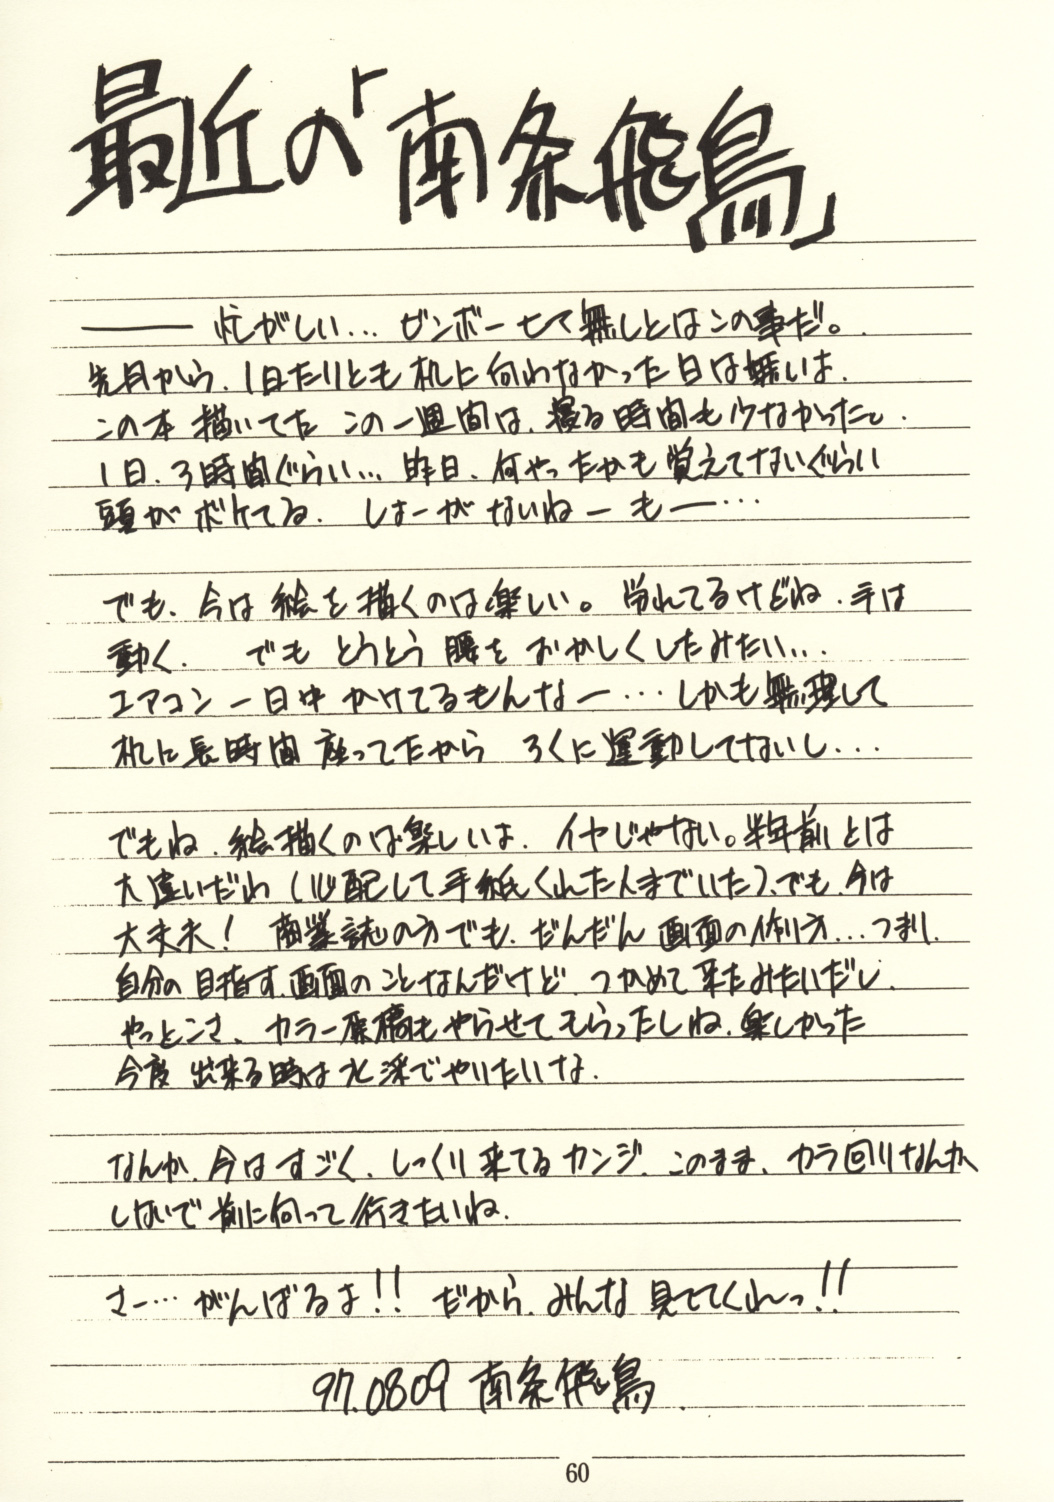 最近の「南条飛鳥」
―― 忙がしい… ビンボー ヒマ無しとはこの事だ。
先月から、1日たりとも机に向わなかった日は無いよ、
この本描いてた この一週間は、寝る時間も少なかったし、
1日、3時間ぐらい… 昨日、何やったかも覚えてないぐらい
頭がボケてる、 しょーがないねー もー…
でも、今は絵を描くのは楽しい。労れてるけどね、手は
動く、 でも とうとう腰をおかしくしたみたい…
エアコン一日中かけてるもんなー… しかも無理して
机に長時間座ってたから ろくに運動してないし…
でもね、絵描くのは楽しいよ、イヤじゃない。半年前とは
大違いだわ(心配して手紙くれた人までいた)、でも、今は
大丈夫! 商業誌の方でも、だんだん画面の作り方…つまり、
自分の目指す、画面のことなんだけど、つかめて来たみたいだし、
やっとこさ、カラー原稿もやらせてもらったしね、楽しかった
今度出来る時は水彩でやりたいな、
なんか、今はすごく、しっくり来てるカンジ、このまま、カラ回りなんか
しないで前に向って行きたいね、
さー… がんばるよ!! だから、みんな見ててくれーっ!!
97.0809 南条飛鳥.
60